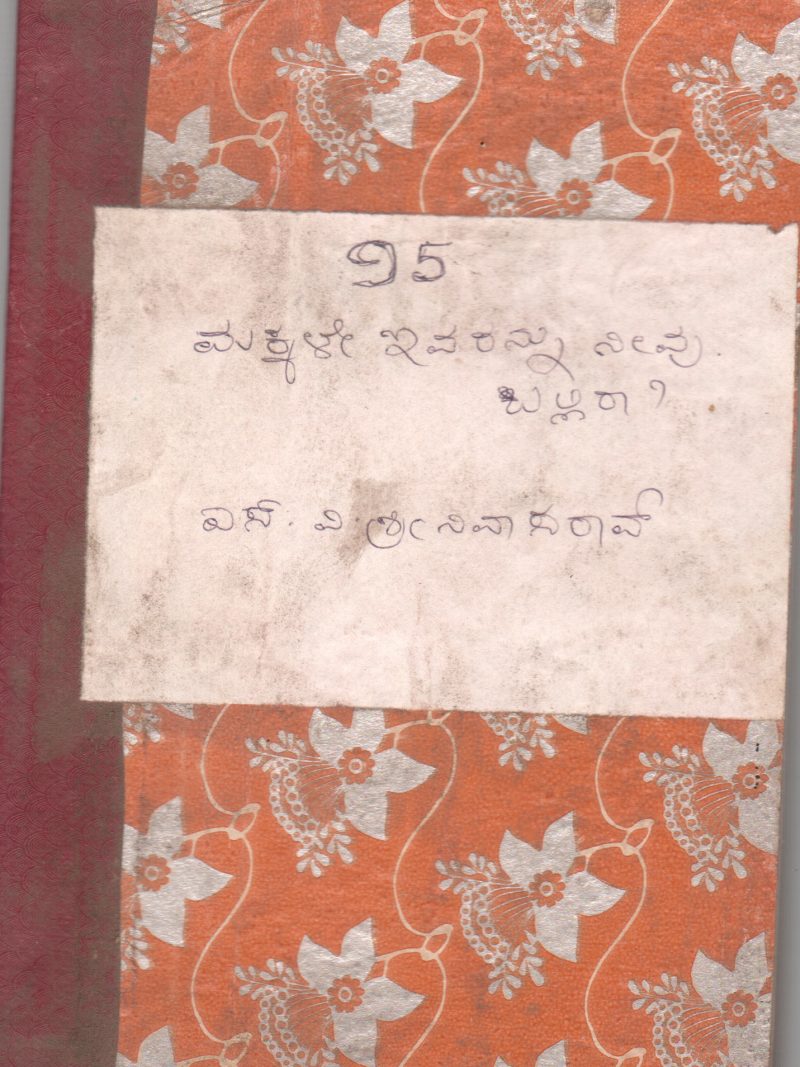 ೨೫
ಮಕ್ಕಳೇ ಇವರನ್ನು ನೀವು
ಬಲ್ಲಿರಾ?
ಎಸ್. ವಿ. ಶ್ರೀನಿವಾಸರಾವ್